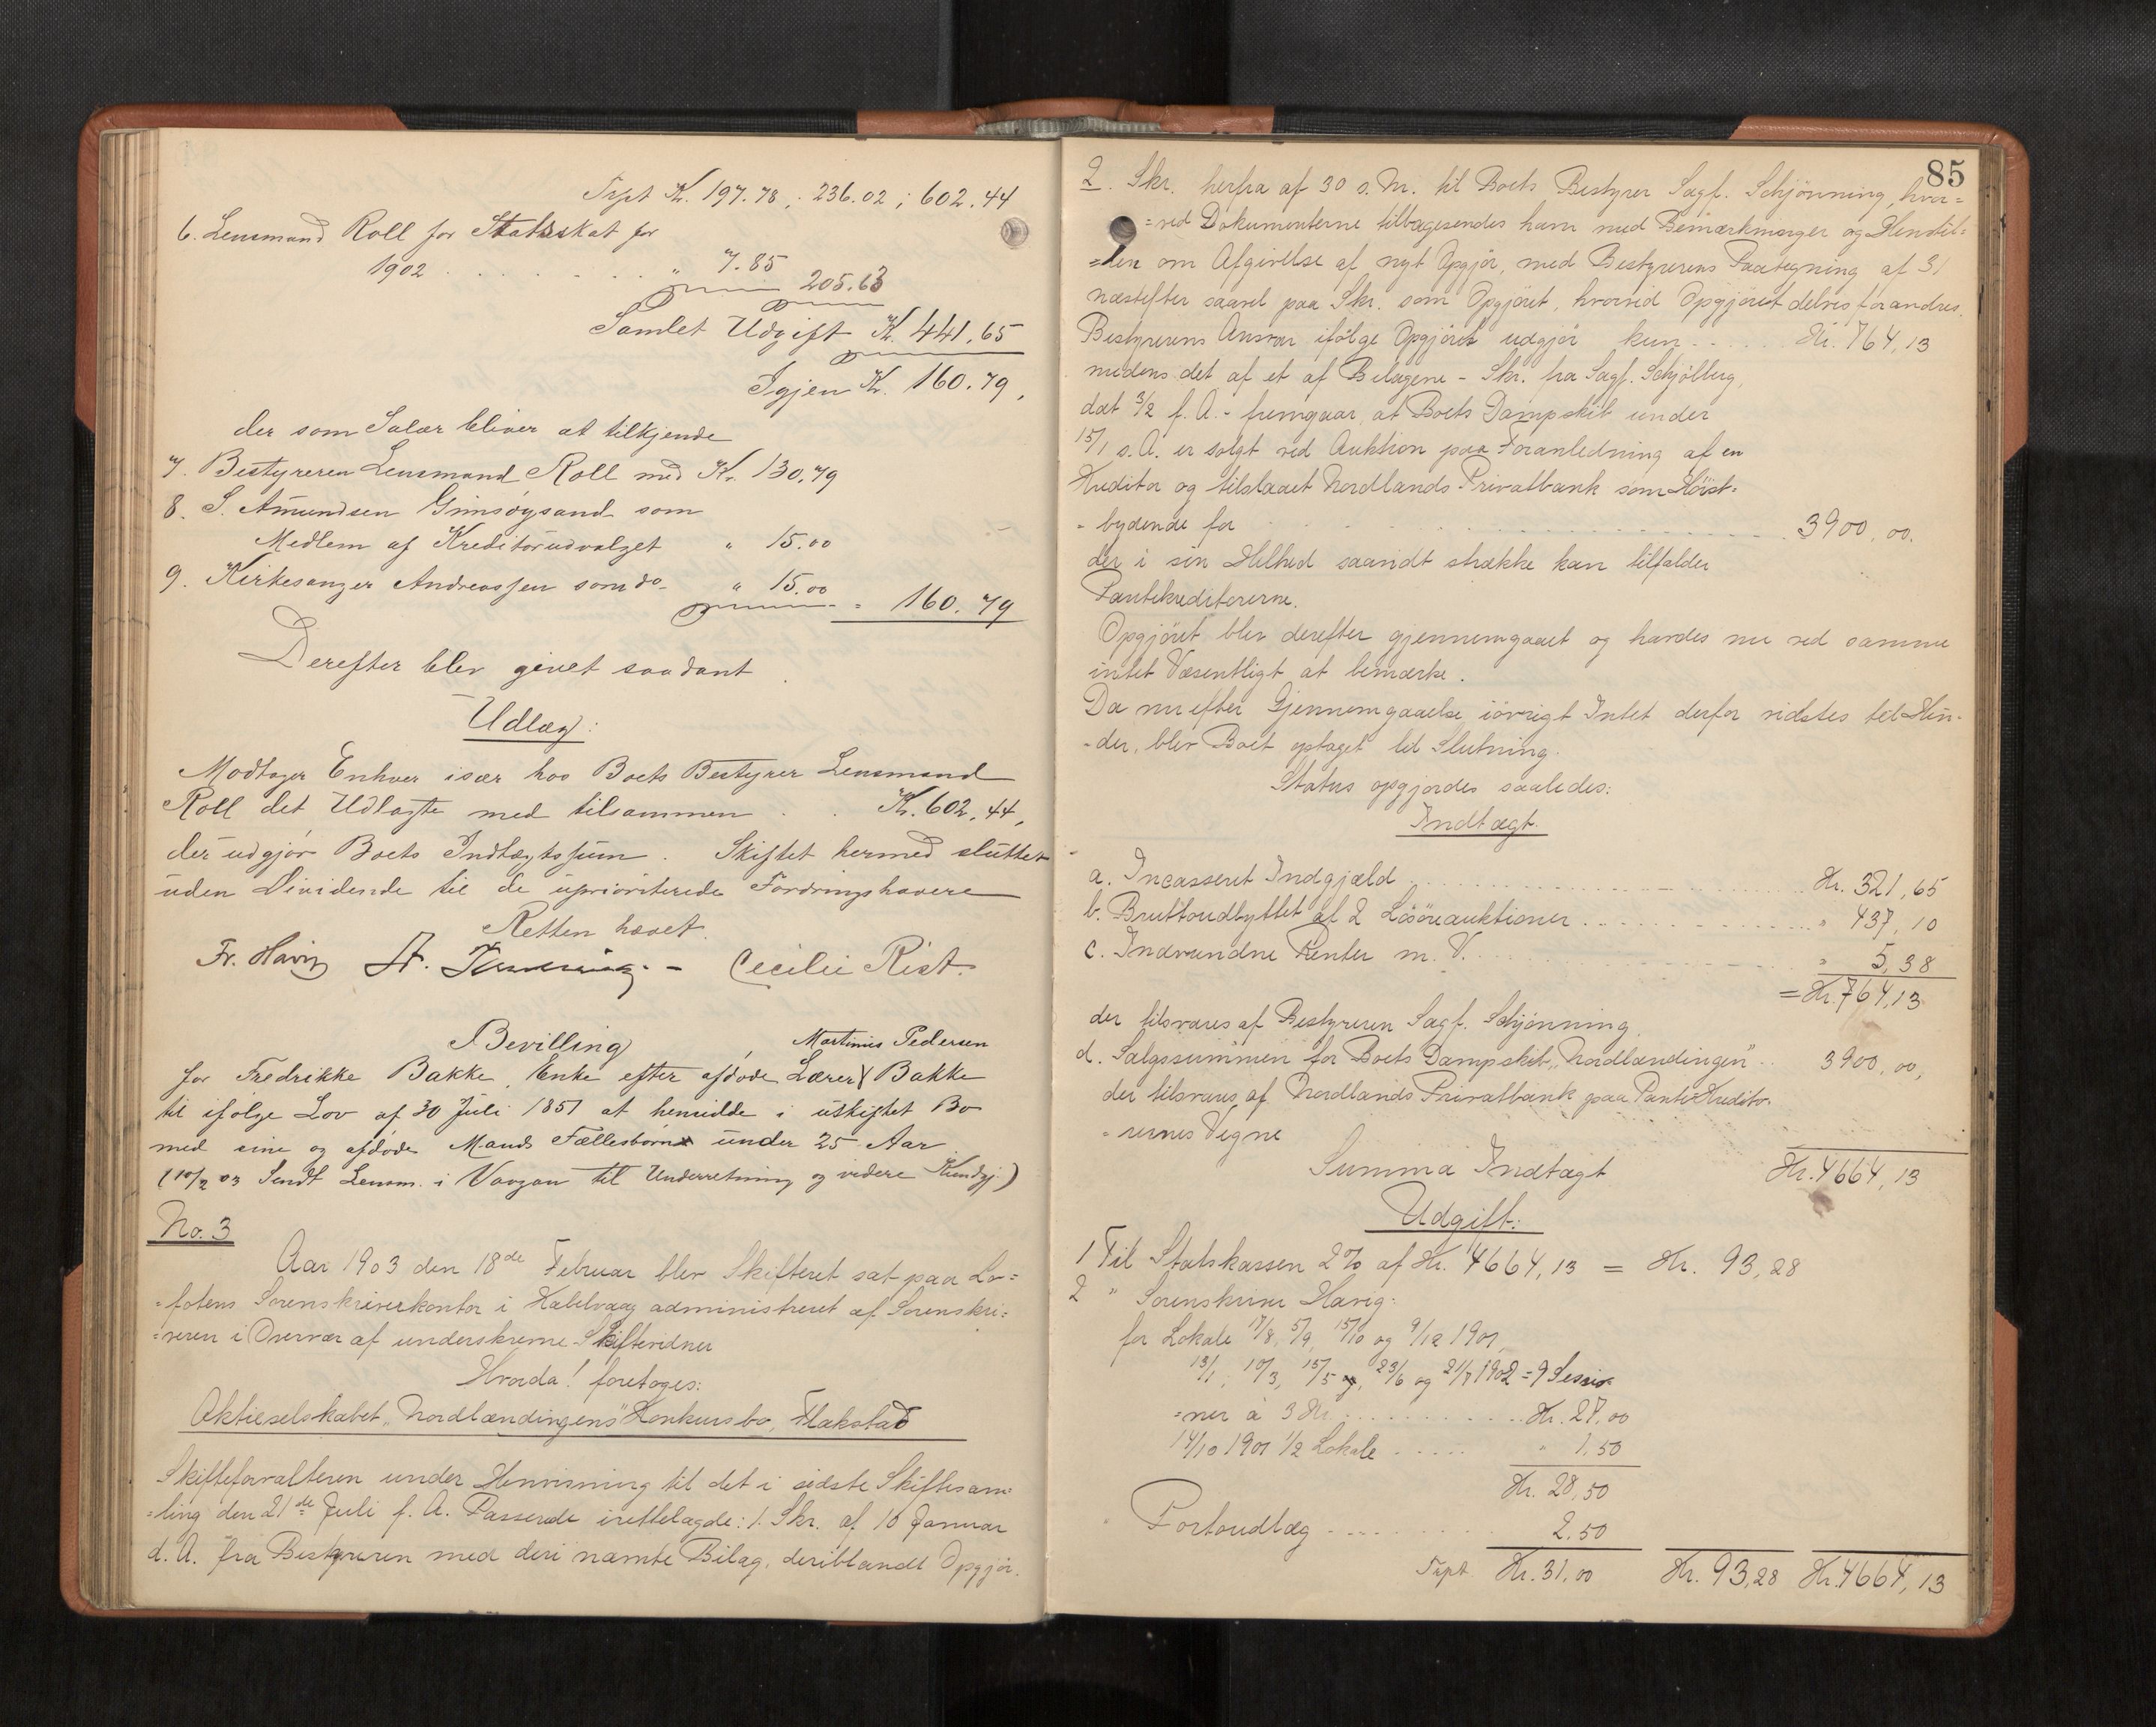 Trpt Kr. 197.78; 236.02; 602.44
6. Lensmand Roll for Statsskat for
1902 . . . . . . . " 7.85 205.63
Samlet Udgift Kr. 441.65
Igjen Kr. 160.79,
der som Salær bliver at tilkjende
7. Bestyreren Lensmand Roll med Kr. 130.79
8. S. Amundsen Grimsøysand som
Medlem af Kreditorudvalget " 15.00
9. Kirkesanger Andreassen som do- " 15.00 = 160.79
Derefter blev givet saadant
Udlæg:
Modtager Enhver især hos Boets Bestyrer Lensmand
Roll det Udlagte med tilsammen . . Kr. 602,44,
der udgjør Boets Indtægtssum. Skiftet hermed sluttet
uden Dividende til de uprioriterede Fordringshavere
Retten hævet.
Fr. Havig Cecilie Rist.
Bevilling
Martinus Pedersen
for Fredrikke Bakke, Enke efter afdøde Lærer Bakke
til ifølge Lov af 30 Juli 1851 at hensidde i uskiftet Bo
med sine og afdøde Mands Fællesbørn under 25 Aar
(10/2 03 Sendt Lensm. i Vaagan til Underretning og videre Kundgj.)
No. 3
Aar 1903 den 18de Februar blev Skifteret sat paa Lo=
=fotens Sorenskriverkontor i Kabelvaag administreret af Sorenskri=
=veren i Overvær af underskrevne Skiftevidner
Hvorda! foretoges:
Aktieselskabet "Nordlændingens" Konkursbo, Flakstad
Skifteforvalteren under Henvisning til det i sidste Skiftesam=
=ling den 21de Juli f. A. Passerede irettelagde: 1. Skr. af 16 Januar
d. A. fra Bestyreren med deri nævnte Bilag, deriblandt Opgjør.
85
2. Skr. herfra af 30 s. M. til Boets Bestyrer Sagf. Schjønning, hvor=
=ved Dokumenterne tilbagesendes ham med Bemærkninger og Henstil=
=len om Afgivelse af nyt Opgjør, med Bestyrerens Paategning af 31
næstefter saavel paa Skr. som Opgjøret, hvorved Opgjøret delvis forandres.
Bestyrerens Ansvar ifølge Opgjøret udgjør kun . . . . . Kr. 764,13
medens det af et af Bilagene - Skr. fra Sagf. Schjølberg,
dat 3/2 f. A. - fremgaar, at Boets Dampskib under
15/1 s. A. er solgt ved Auktion paa Foranledning af en
Kreditor og tilslaaet Nordlands Privatbank som Høist=
=bydende for . . . . . 3900,00.
der i sin Helhed saavidt strække kan tilfalder
Pantekreditorerne.
Opgjøret blev derefter gjennemgaaet og havdes nu ved samme
intet Væsentligt at bemærke.
Da nu efter Gjennemgaaelse iøvrigt Intet derfor vidstes til Hin=
=der, blev Boet optaget til Slutning.
Status opgjordes saaledes:
Indtægt.
a. Incasseret Indgjæld . . . . . Kr. 321,65
b. Bruttoudbyttet af 2 Løsøreauktioner . . . . . " 437,10
c. Indvundne Renter m. V. . . . . . " 5,38
= Kr. 764,13
der tilsvares af Bestyreren Sagf. Schjønning.
d. Salgssummen for Boets Dampskib "Nordlændingen" . . 3900,00,
der tilsvares af Nordlands Privatbank paa Pantekredito=
=rernes Vegne
Summa Indtægt Kr. 4664,13
Udgift:
1 Til Statskassen 2% af Kr. 4664,13 = Kr. 93,28
2 " Sorenskriver Havig:
for Lokale 17/8, 5/9, 15/10 og 9/12 1901,
13/1, 10/3, 15/5, 23/6 og 21/7 1902 = 9 Sessio=
=ner à 3 Kr. . . . . . Kr. 27,00
14/10 1901 1/2 Lokale . . . . . " 1,50
Kr. 28,50
Portoudlæg . . . . . 2,50
Trpt Kr. 31,00 Kr. 93,28 Kr. 4664,13